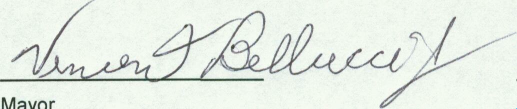 Vincent J Bellucci Jr
Mayor